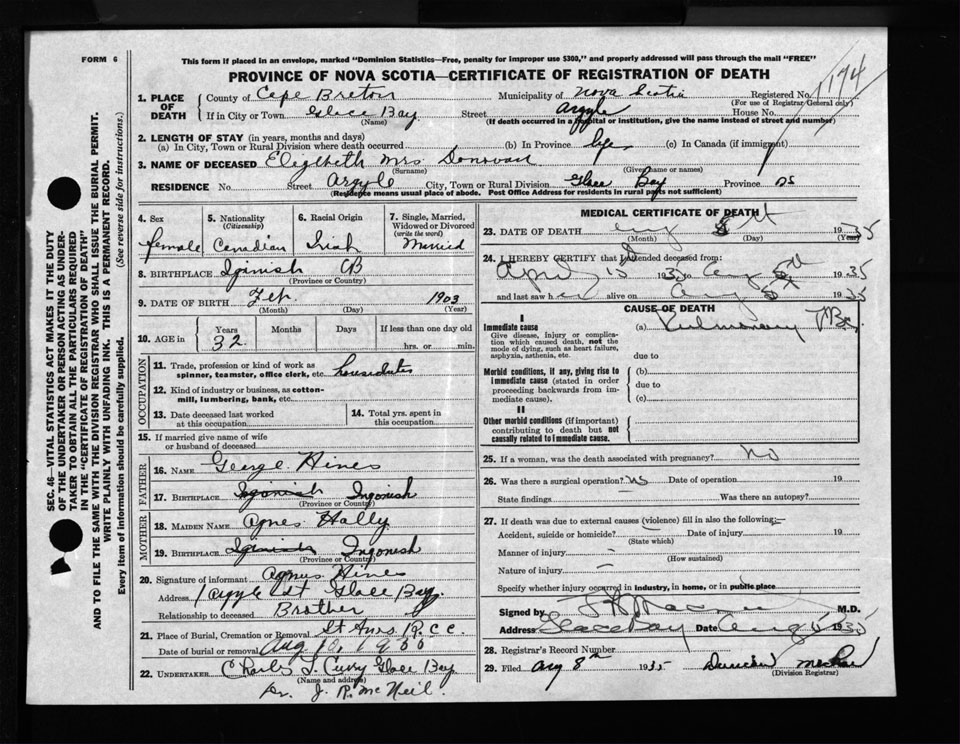 FORM 6
This form if placed in an envelope, marked "Dominion Statistics—Free, penalty for improper use $300," and properly addressed will pass through the mail "FREE"
PROVINCE OF NOVA SCOTIA—CERTIFICATE OF REGISTRATION OF DEATH
1. PLACE OF DEATH
County of Cape Breton Municipality of Nova Scotia Registered No.
(For use of Registrar General only)
If in City or Town Glace Bay Street Argyle House No.
(Name) (If death occurred in a hospital or institution, give the name instead of street and number)
2. LENGTH OF STAY (in years, months and days)
(a) In City, Town or Rural Division where death occurred (b) In Province life (c) In Canada (if immigrant)
3. NAME OF DECEASED Eligibeth Mrs Donovan
(Surname) (Given name or names)
RESIDENCE No. Street Argyle City, Town or Rural Division Glace Bay Province NS
(Residence means usual place of abode. Post Office Address for residents in rural parts not sufficient)
4. Sex
female
5. Nationality
(Citizenship)
Canadian
6. Racial Origin
Irish
7. Single, Married,
Widowed or Divorced
(write the word)
Married
8. BIRTHPLACE Iginish CB
(Province or Country)
9. DATE OF BIRTH Feb 1903
(Month) (Day) (Year)
10. AGE in
Years Months Days If less than one day old
32 hrs. or min.
OCCUPATION
11. Trade, profession or kind of work as
spinner, teamster, office clerk, etc.
12. Kind of industry or business, as cotton-
mill, lumbering, bank, etc.
13. Date deceased last worked
at this occupation
14. Total yrs. spent in
this occupation
15. If married give name of wife
or husband of deceased
FATHER
16. NAME George Hines
17. BIRTHPLACE Ingonish
(Province or Country)
MOTHER
18. MAIDEN NAME Agnes Hally
19. BIRTHPLACE Iginish Ingonish
(Province or Country)
20. Signature of informant Agnus Hines
Address Argyle St Glace Bay
Relationship to deceased Brother
21. Place of Burial, Cremation or Removal St Anns R.C.C.
Date of burial or removal Aug
22. UNDERTAKER Charles J. Curry Glace Bay
(Name and address)
Per. J. R. McNeil.
MEDICAL CERTIFICATE OF DEATH
23. DATE OF DEATH Aug 1935
(Month) (Day) (Year)
24. I HEREBY CERTIFY that I attended deceased from:
April 15 1935 to Aug 1935
and last saw h alive on Aug 1935
CAUSE OF DEATH
I
Immediate cause
Give disease, injury or complica-
tion which caused death, not the
mode of dying, such as heart failure,
asphyxia, asthenia, etc.
(a) Pulmonary TBc.
due to
Morbid conditions, if any, giving rise to
immediate cause (stated in order
proceeding backwards from im-
mediate cause).
(b)
due to
(c)
II
Other morbid conditions (if important)
contributing to death but not
causally related to immediate cause.
25. If a woman, was the death associated with pregnancy? No
26. Was there a surgical operation? No Date of operation 19
State findings Was there an autopsy?
27. If death was due to external causes (violence) fill in also the following:
Accident, suicide or homicide? Date of injury 19
(State which)
Manner of injury
(How sustained)
Nature of injury
Specify whether injury occurred in industry, in home, or in public place
Signed by M.D.
Address Glace Bay Date Aug 1935
28. Registrar's Record Number
29. Filed Aug 8th 1935 Duncan
(Division Registrar)
SEC. 46—VITAL STATISTICS ACT MAKES IT THE DUTY
OF THE UNDERTAKER OR PERSON ACTING AS UNDER-
TAKER TO OBTAIN ALL THE PARTICULARS REQUIRED
IN THE "CERTIFICATE OF REGISTRATION OF DEATH"
AND TO FILE THE SAME WITH THE DIVISION REGISTRAR WHO SHALL ISSUE THE BURIAL PERMIT.
WRITE PLAINLY WITH UNFADING INK. THIS IS A PERMANENT RECORD.
Every item of information should be carefully supplied. (See reverse side for instructions.)